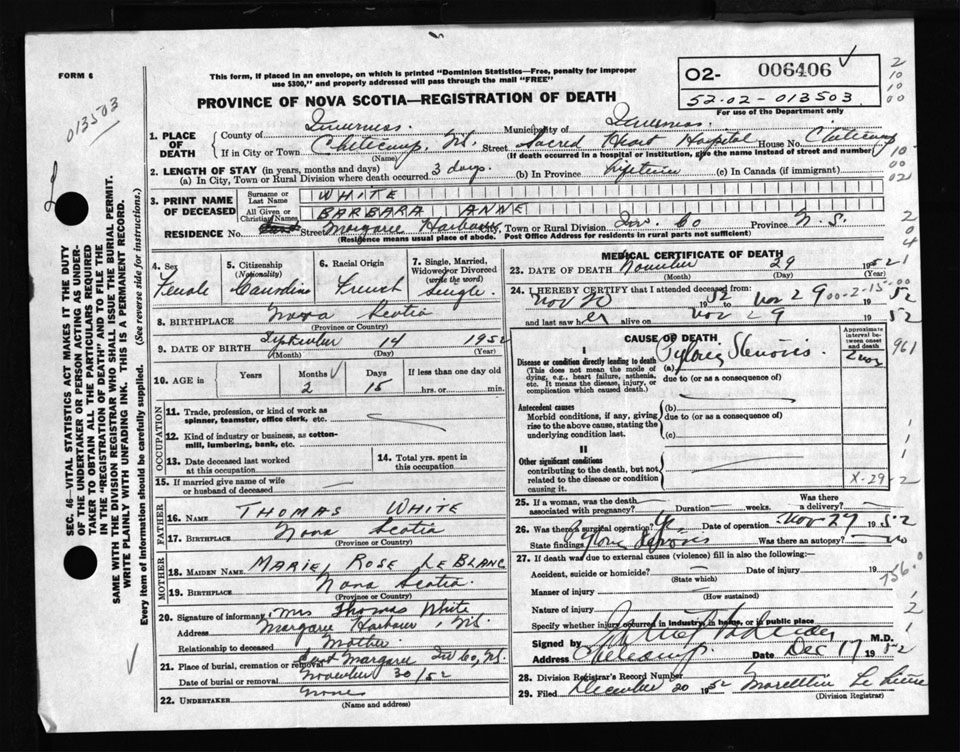 FORM 6
This form, if placed in an envelope, on which is printed "Dominion Statistics—Free, penalty for improper
use $300," and properly addressed will pass through the mail "FREE"
02- 006406
52-02-013503
For use of the Department only
013503
PROVINCE OF NOVA SCOTIA—REGISTRATION OF DEATH
1. PLACE OF DEATH
County of Inverness. Municipality of Inverness.
If in City or Town Cheticamp, N.S. Street Sacred Heart Hospital House No. Cheticamp
(Name) (If death occurred in a hospital or institution, give the name instead of street and number)
2. LENGTH OF STAY (in years, months and days)
(a) In City, Town or Rural Division where death occurred 3 days. (b) In Province Lifetime (c) In Canada (if immigrant)
3. PRINT NAME OF DECEASED
Surname or Last Name WHITE
All Given or Christian Names BARBARA ANNE
RESIDENCE No. Street Margaree Harbour City, Town or Rural Division Inv. Co Province N.S.
(Residence means usual place of abode. Post Office Address for residents in rural parts not sufficient)
4. Sex Female
5. Citizenship (Nationality) Canadian
6. Racial Origin French
7. Single, Married, Widowed or Divorced (write the word) Single
8. BIRTHPLACE Nova Scotia
(Province or Country)
9. DATE OF BIRTH September 14 1952
(Month) (Day) (Year)
10. AGE in Years Months 2 Days 15 If less than one day old hrs. or min.
OCCUPATION
11. Trade, profession, or kind of work as spinner, teamster, office clerk, etc.
12. Kind of industry or business, as cotton-mill, lumbering, bank, etc.
13. Date deceased last worked at this occupation
14. Total yrs. spent in this occupation
15. If married give name of wife or husband of deceased
FATHER
16. NAME THOMAS WHITE
17. BIRTHPLACE Nova Scotia
(Province or Country)
MOTHER
18. MAIDEN NAME MARIE ROSE LEBLANC
19. BIRTHPLACE Nova Scotia
(Province or Country)
20. Signature of informant Mrs Thomas White
Address Margaree Harbour, N.S.
Relationship to deceased Mother
21. Place of burial, cremation or removal East Margaree Inv Co, N.S.
Date of burial or removal November 30/52
22. UNDERTAKER None
(Name and address)
MEDICAL CERTIFICATE OF DEATH
23. DATE OF DEATH November 29 1952
(Month) (Day) (Year)
24. I HEREBY CERTIFY that I attended deceased from:
Nov 20 1952 to Nov 29 1952
and last saw her alive on Nov 29 1952
CAUSE OF DEATH
Approximate interval between onset and death
I
Disease or condition directly leading to death
(This does not mean the mode of dying, e.g., heart failure, asthenia, etc. It means the disease, injury, or complication which caused death.)
(a) Pyloric Stenosis
due to (or as a consequence of)
Antecedent causes
Morbid conditions, if any, giving rise to the above cause, stating the underlying condition last.
(b)
due to (or as a consequence of)
(c)
II
Other significant conditions
contributing to the death, but not related to the disease or condition causing it.
X-29
25. If a woman, was the death associated with pregnancy? Duration weeks. Was there a delivery?
26. Was there a surgical operation? Date of operation Nov 29 1952
State findings Pyloric Stenosis Was there an autopsy? no
27. If death was due to external causes (violence) fill in also the following:
Accident, suicide or homicide? Date of injury 19
(State which)
Manner of injury
(How sustained)
Nature of injury
Specify whether injury occurred in industry, in home, or in public place
Signed by M.D.
Address Cheticamp. Date Dec 17 1952
28. Division Registrar's Record Number
29. Filed December 20 1952
(Division Registrar)
SEC. 46—VITAL STATISTICS ACT MAKES IT THE DUTY
OF THE UNDERTAKER OR PERSON ACTING AS UNDER-
TAKER TO OBTAIN ALL THE PARTICULARS REQUIRED
IN THE "REGISTRATION OF DEATH" AND TO FILE THE
SAME WITH THE DIVISION REGISTRAR WHO SHALL ISSUE THE BURIAL PERMIT.
WRITE PLAINLY WITH UNFADING INK. THIS IS A PERMANENT RECORD.
Every item of information should be carefully supplied. (See reverse side for instructions.)